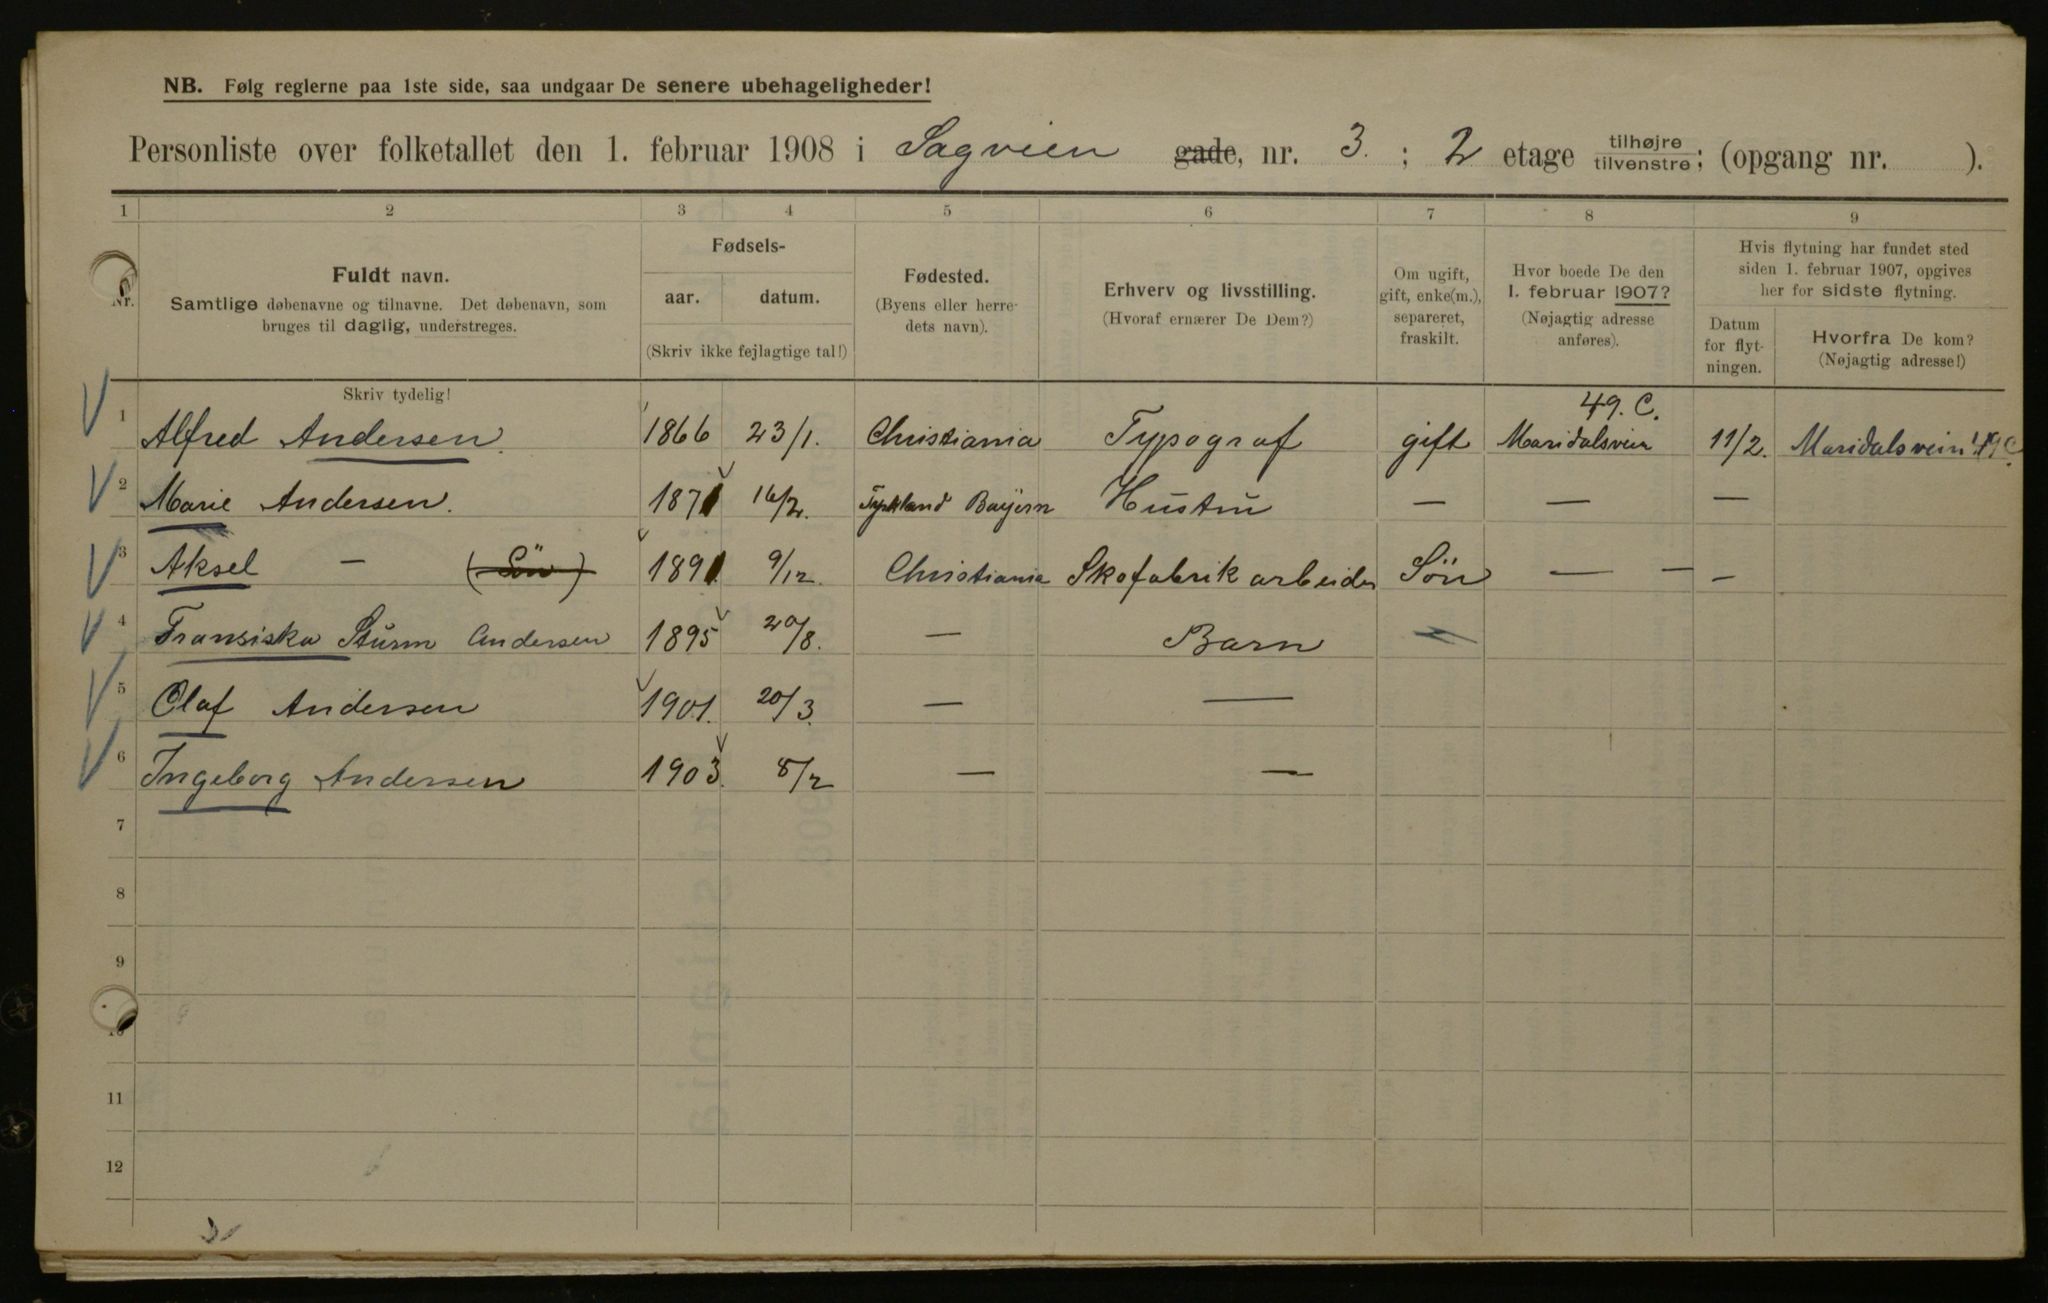 NB. Følg reglerne paa 1ste side, saa undgaar De senere ubehageligheder!
Personliste over folketallet den 1. februar 1908 i Sagveien gade, nr. 3. ; 2 etage tilhøjre tilvenstre; (opgang nr. ).
1 2 3 4 5 6 7 8 9
Nr.
Fuldt navn.
Samtlige døbenavne og tilnavne. Det døbenavn, som
bruges til daglig, understreges.
Skriv tydelig!
Fødsels-
aar. datum.
(Skriv ikke fejlagtige tal!)
Fødested.
(Byens eller herre-
dets navn).
Erhverv og livsstilling.
(Hvoraf ernærer De Dem?)
Om ugift,
gift, enke(m.),
separeret,
fraskilt.
Hvor boede De den
1. februar 1907?
(Nøjagtig adresse
anføres).
Hvis flytning har fundet sted
siden 1. februar 1907, opgives
her for sidste flytning.
Datum
for flyt-
ningen.
Hvorfra De kom?
(Nøjagtig adresse!)
49. C.
1 Alfred Andersen. 1866 23/1. Christiania Typograf gift Maridalsvein 11/2. Maridalsvein 49 C
2 Marie Andersen. 1871 16/2. Tyskland Bayern Hustru — — —
3 Aksel — (Sön) 1891 9/12. Christiania Skofabrik arbeider Sön — — —
4 Fransiska Sturm Andersen 1895 20/8. — Barn —
5 Olaf Andersen 1901. 20/3. — —
6 Ingeborg Andersen 1903. 8/2 — —
7
8
9
10
11
12